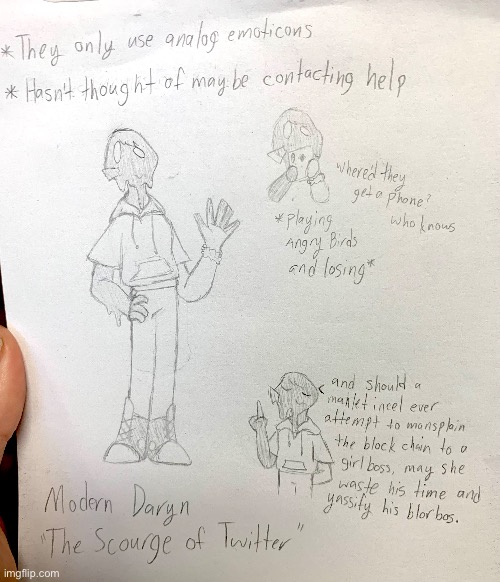 *They only use analog emoticons
* Hasn't thought of maybe contacting help
Where'd they
get a phone?
who knows
*playing
Angry Birds
and losing*
and should a
manlet incel ever
attempt to mansplain
the block chain to a
girlboss, may she
waste his time and
yassify his blorbos.
Modern Daryn
"The Scourge of Twitter"
imgflip.com